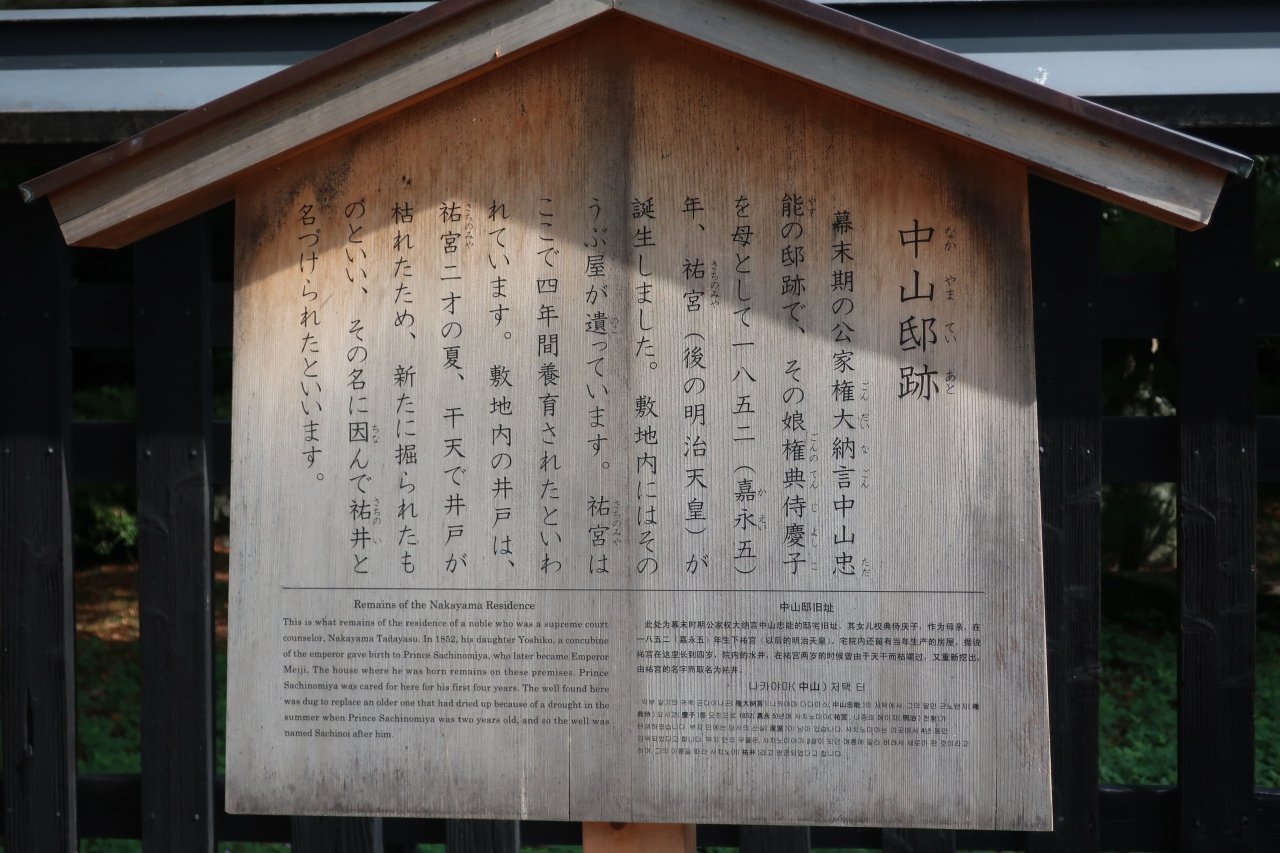 中山邸跡
なか やま てい あと
幕末期の公家権大納言中山忠
ごん だい な ごん ただ
能の邸跡で、その娘権典侍慶子
やす ごんの てん じ よし こ
を母として一八五二（嘉永五）
か えい
年、祐宮（後の明治天皇）が
さちのみや
誕生しました。敷地内にはその
うぶ屋が遺っています。祐宮は
のこ さちのみや
ここで四年間養育されたといわ
れています。敷地内の井戸は、
祐宮二才の夏、干天で井戸が
さちのみや
枯れたため、新たに掘られたも
のといい、その名に因んで祐井と
ちな さちの い
名づけられたといいます。
Remains of the Nakayama Residence
This is what remains of the residence of a noble who was a supreme court
counselor, Nakayama Tadayasu. In 1852, his daughter Yoshiko, a concubine
of the emperor gave birth to Prince Sachinomiya, who later became Emperor
Meiji. The house where he was born remains on these premises. Prince
Sachinomiya was cared for here for his first four years. The well found here
was dug to replace an older one that had dried up because of a drought in the
summer when Prince Sachinomiya was two years old, and so the well was
named Sachinoi after him.
中山邸旧址
此处为幕末时期公家权大纳言中山忠能的邸宅旧址，其女儿权典侍庆子，作为母亲，在
一八五二（嘉永五）年生下祐宫（以后的明治天皇）。宅院内还留有当年生产的房屋，据说
祐宫在这里长到四岁，院内的水井，在祐宫两岁的时候曾由于天干而枯竭过，又重新挖出，
由祐宫的名字而取名为祐井。
나카야마(中山) 저택 터